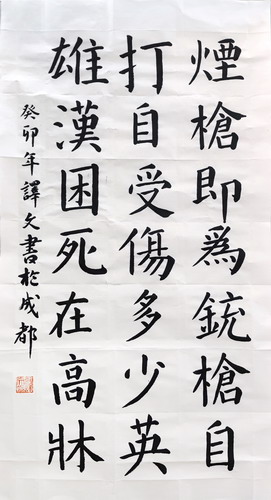 煙槍即爲銃槍自
打自受傷多少英
雄漢困死在高牀
癸卯年譯文書於成都